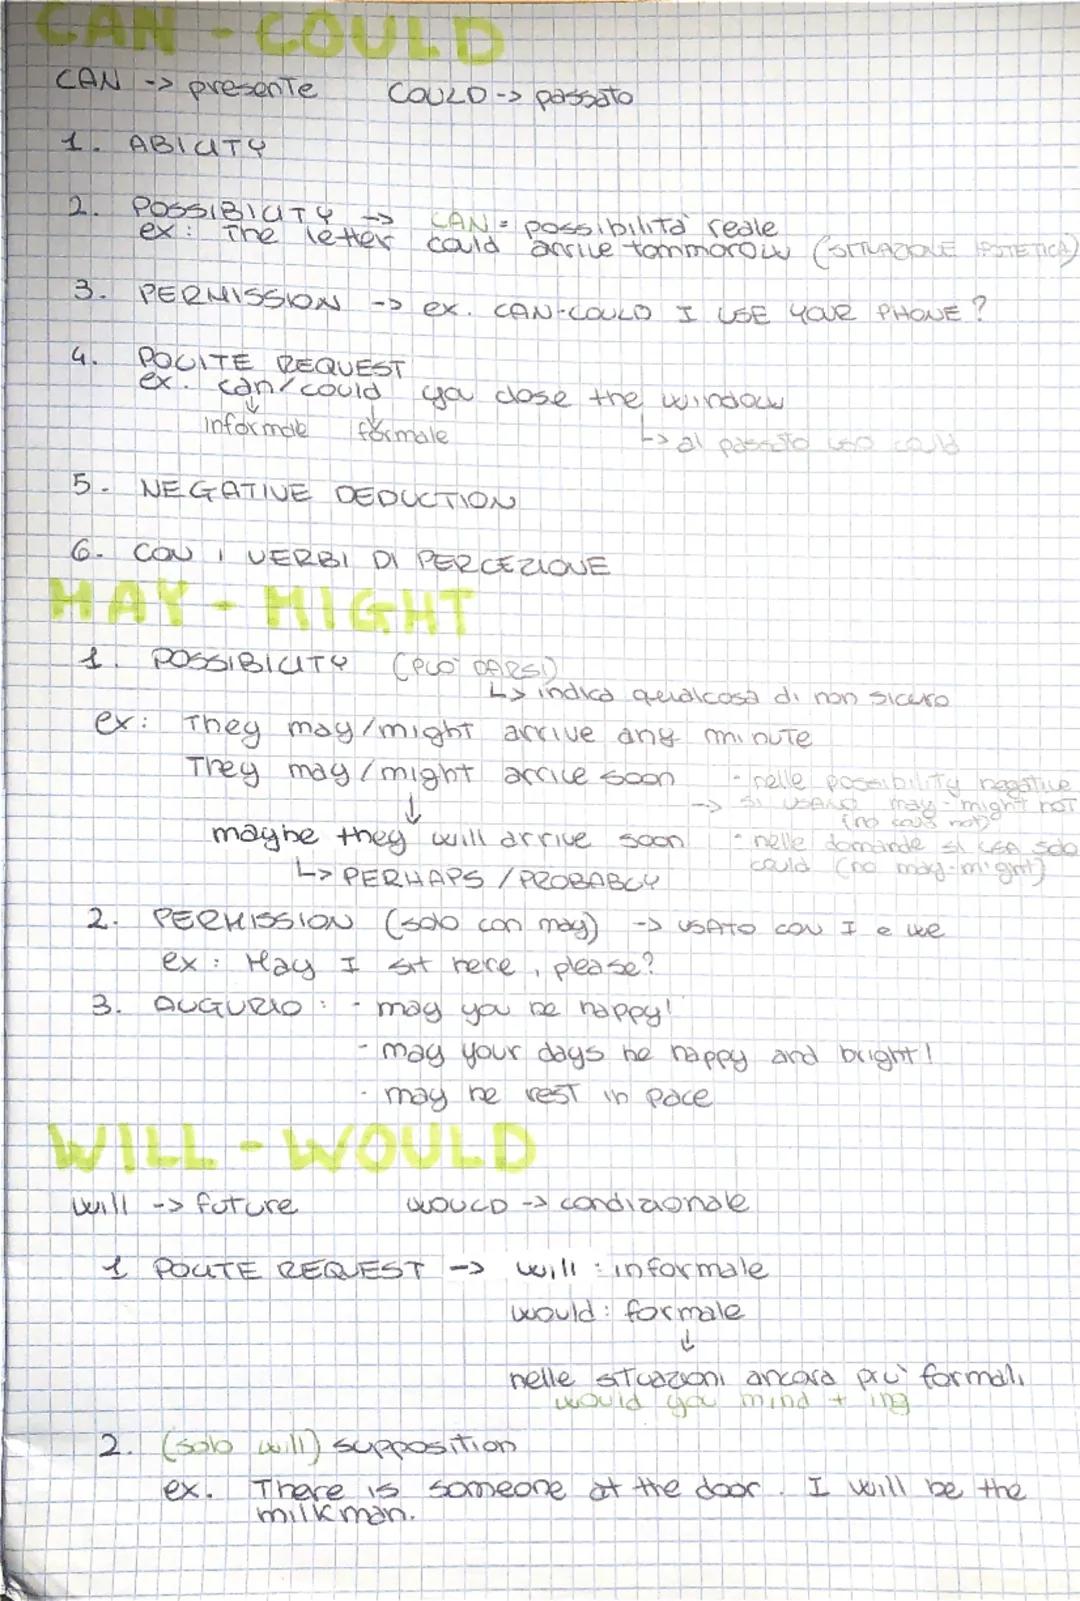 CAN - COULD
CAN -> presente COULD -> passato
1. ABILITY
2. POSSIBILITY -> CAN = possibilità reale
ex: The letter could arrive tommorow (SITUAZIONE IPOTETICA)
3. PERMISSION -> ex. CAN-COULD I USE YOUR PHONE?
4. POLITE REQUEST
ex. can/could you close the window
↓ informale ↓ formale ↳ al passato uso could
5. NEGATIVE DEDUCTION
6. CON I VERBI DI PERCEZIONE
MAY - MIGHT
1. POSSIBILITY (PUO' DARSI)
↳ indica qualcosa di non sicuro
ex: They may/might arrive any minute
They may/might arrive soon - nelle possibility negative
↓ -> si USANO may-might not
(no could not)
maybe they will arrive soon - nelle domande si usa solo
could (no may-might)
↳ PERHAPS / PROBABLY
2. PERMISSION (solo con may) -> USATO CON I e we
ex: May I sit here, please?
3. AUGURIO: - may you be happy!
- may your days be happy and bright!
- may he rest in pace
WILL - WOULD
will -> future WOULD -> condizionale
1 POLITE REQUEST -> will: informale
would: formale
↓
nelle situazioni ancora più formali
would you mind + ing
2. (solo will) supposition
ex. There is someone at the door. I will be the
milkman.